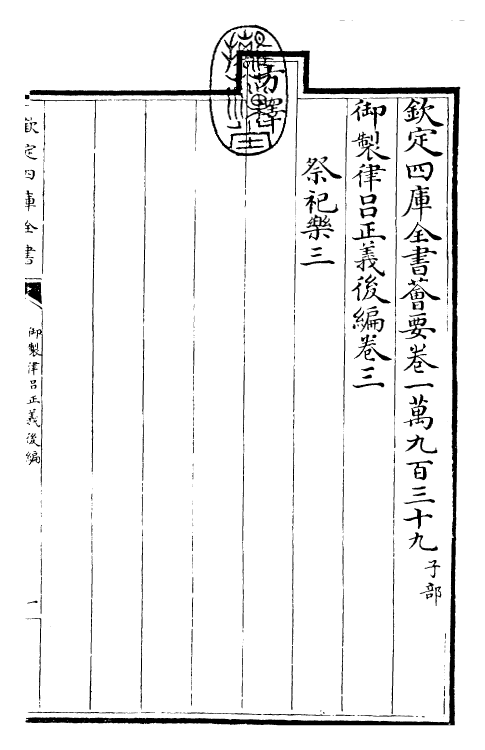 欽定四庫全書薈要卷一萬九百三十九子部
御製律呂正義後編卷三
祭祀樂三
欽定四庫全書
御製律呂正義後編
一